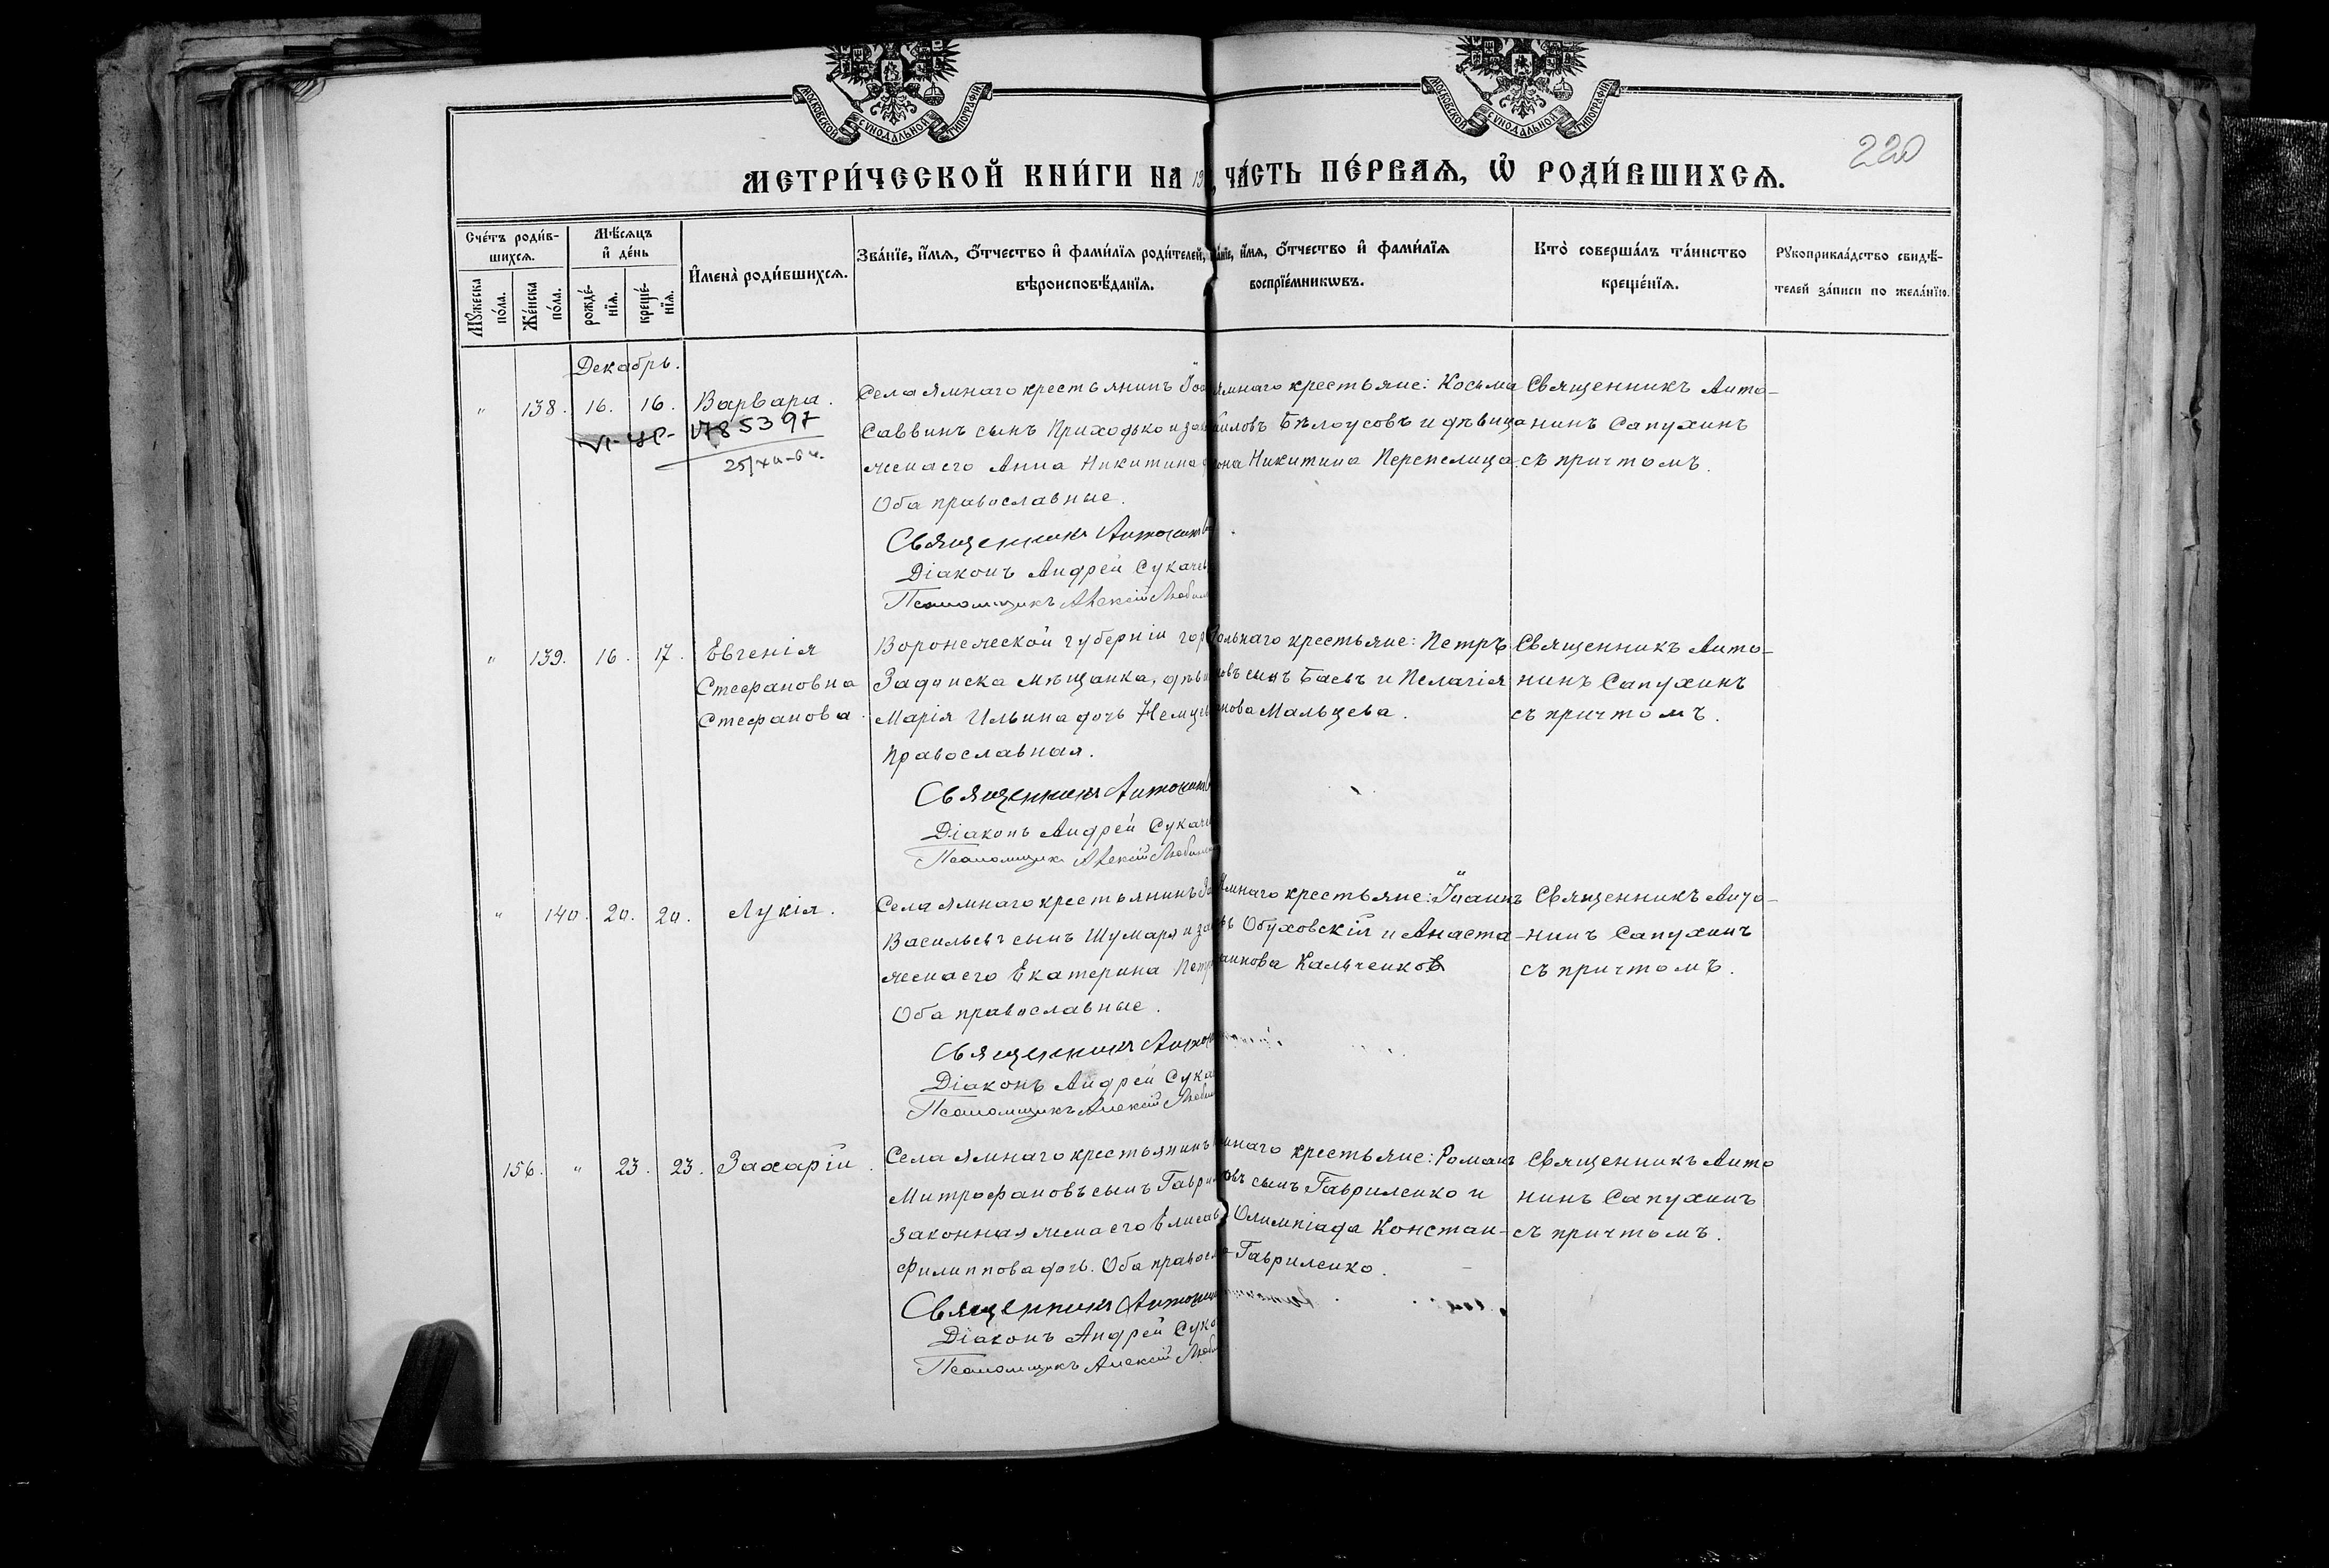 МОСКОВСКОЙ СѴНОДАЛЬНОЙ ТИПОГРАФІИ
МОСКОВСКОЙ СѴНОДАЛЬНОЙ ТИПОГРАФІИ
220
МЕТРИ́ЧЕСКОЙ КНИ́ГИ НА 19 ЧА́СТЬ ПЕ́РВАѦ, Ѡ҆ РОДИ́ВШИХСѦ.
Сче́тъ роди́в-
шихсѧ.
Мꙋ́жеска по́ла.
Же́нска по́ла.
Мѣ́сѧцъ и҆ де́нь
рожде́-
нїѧ.
креще́-
нїѧ.
И҆мена̀ роди́вшихсѧ.
Зва́нїе, и҆́мѧ, ѻ҆́тчество и҆ фами́лїѧ роди́телей,
вѣроисповѣ́данїѧ.
и҆́мѧ, ѻ҆́тчество и҆ фами́лїѧ
воспрїе́мникѡвъ.
Кто̀ соверша́лъ та́инство
креще́нїѧ.
Рꙋкоприкла́дство свидѣ́-
телей за́писи по жела́нїю.
Декабрь.
" 138. 16. 16. Варвара.
785397
Села Ямнаго крестьянинъ
Саввинъ сынъ Приходько и
жена его Анна Никитина
Оба православные.
Священникъ Антонинъ
Діаконъ Андрей Сукаче
Псаломщикъ Алексій Любим
Ямнаго крестьяне: Косьма
Бѣлоусовъ и дѣвица
Никитина Перепелица.
Священникъ Анто-
нинъ Сапухинъ
съ причтомъ.
" 139. 16. 17. Евгенія
Стефановна
Стефанова.
Воронежской губерніи гор
Задонска мѣщанка, дѣви
Марія Ильина дочь Немцев
Православная.
Священникъ Антонинъ
Діаконъ Андрей Сукаче
Псаломщикъ Алексій Любим
крестьяне: Петръ
сынъ Баевъ и Пелагія
Мальцева.
Священникъ Анто-
нинъ Сапухинъ
съ причтомъ.
" 140. 20. 20. Лукія.
Села Ямнаго крестьянинъ
Васильевъ сынъ Шумаря и за
жена его Екатерина Петр
Оба православные.
Священникъ Антон
Діаконъ Андрей Сука
Псаломщикъ Алексій Люби
Ямнаго крестьяне: Іоаннъ
Обуховскій и Анаста-
Кальченков
Священникъ Анто-
нинъ Сапухинъ
съ причтомъ.
156. " 23. 23. Захарій.
Села Ямнаго крестьянинъ
Митрофановъ сынъ Гаврил
законная жена его Елисав
Филиппова дочь. Оба правосл
Священникъ Антонин
Діаконъ Андрей Сука
Псаломщикъ Алексій Люби
крестьяне: Романъ
сынъ Гавриленко и
Олимпіада Констан-
Гавриленко.
Священникъ Анто
нинъ Сапухинъ
съ причтомъ.